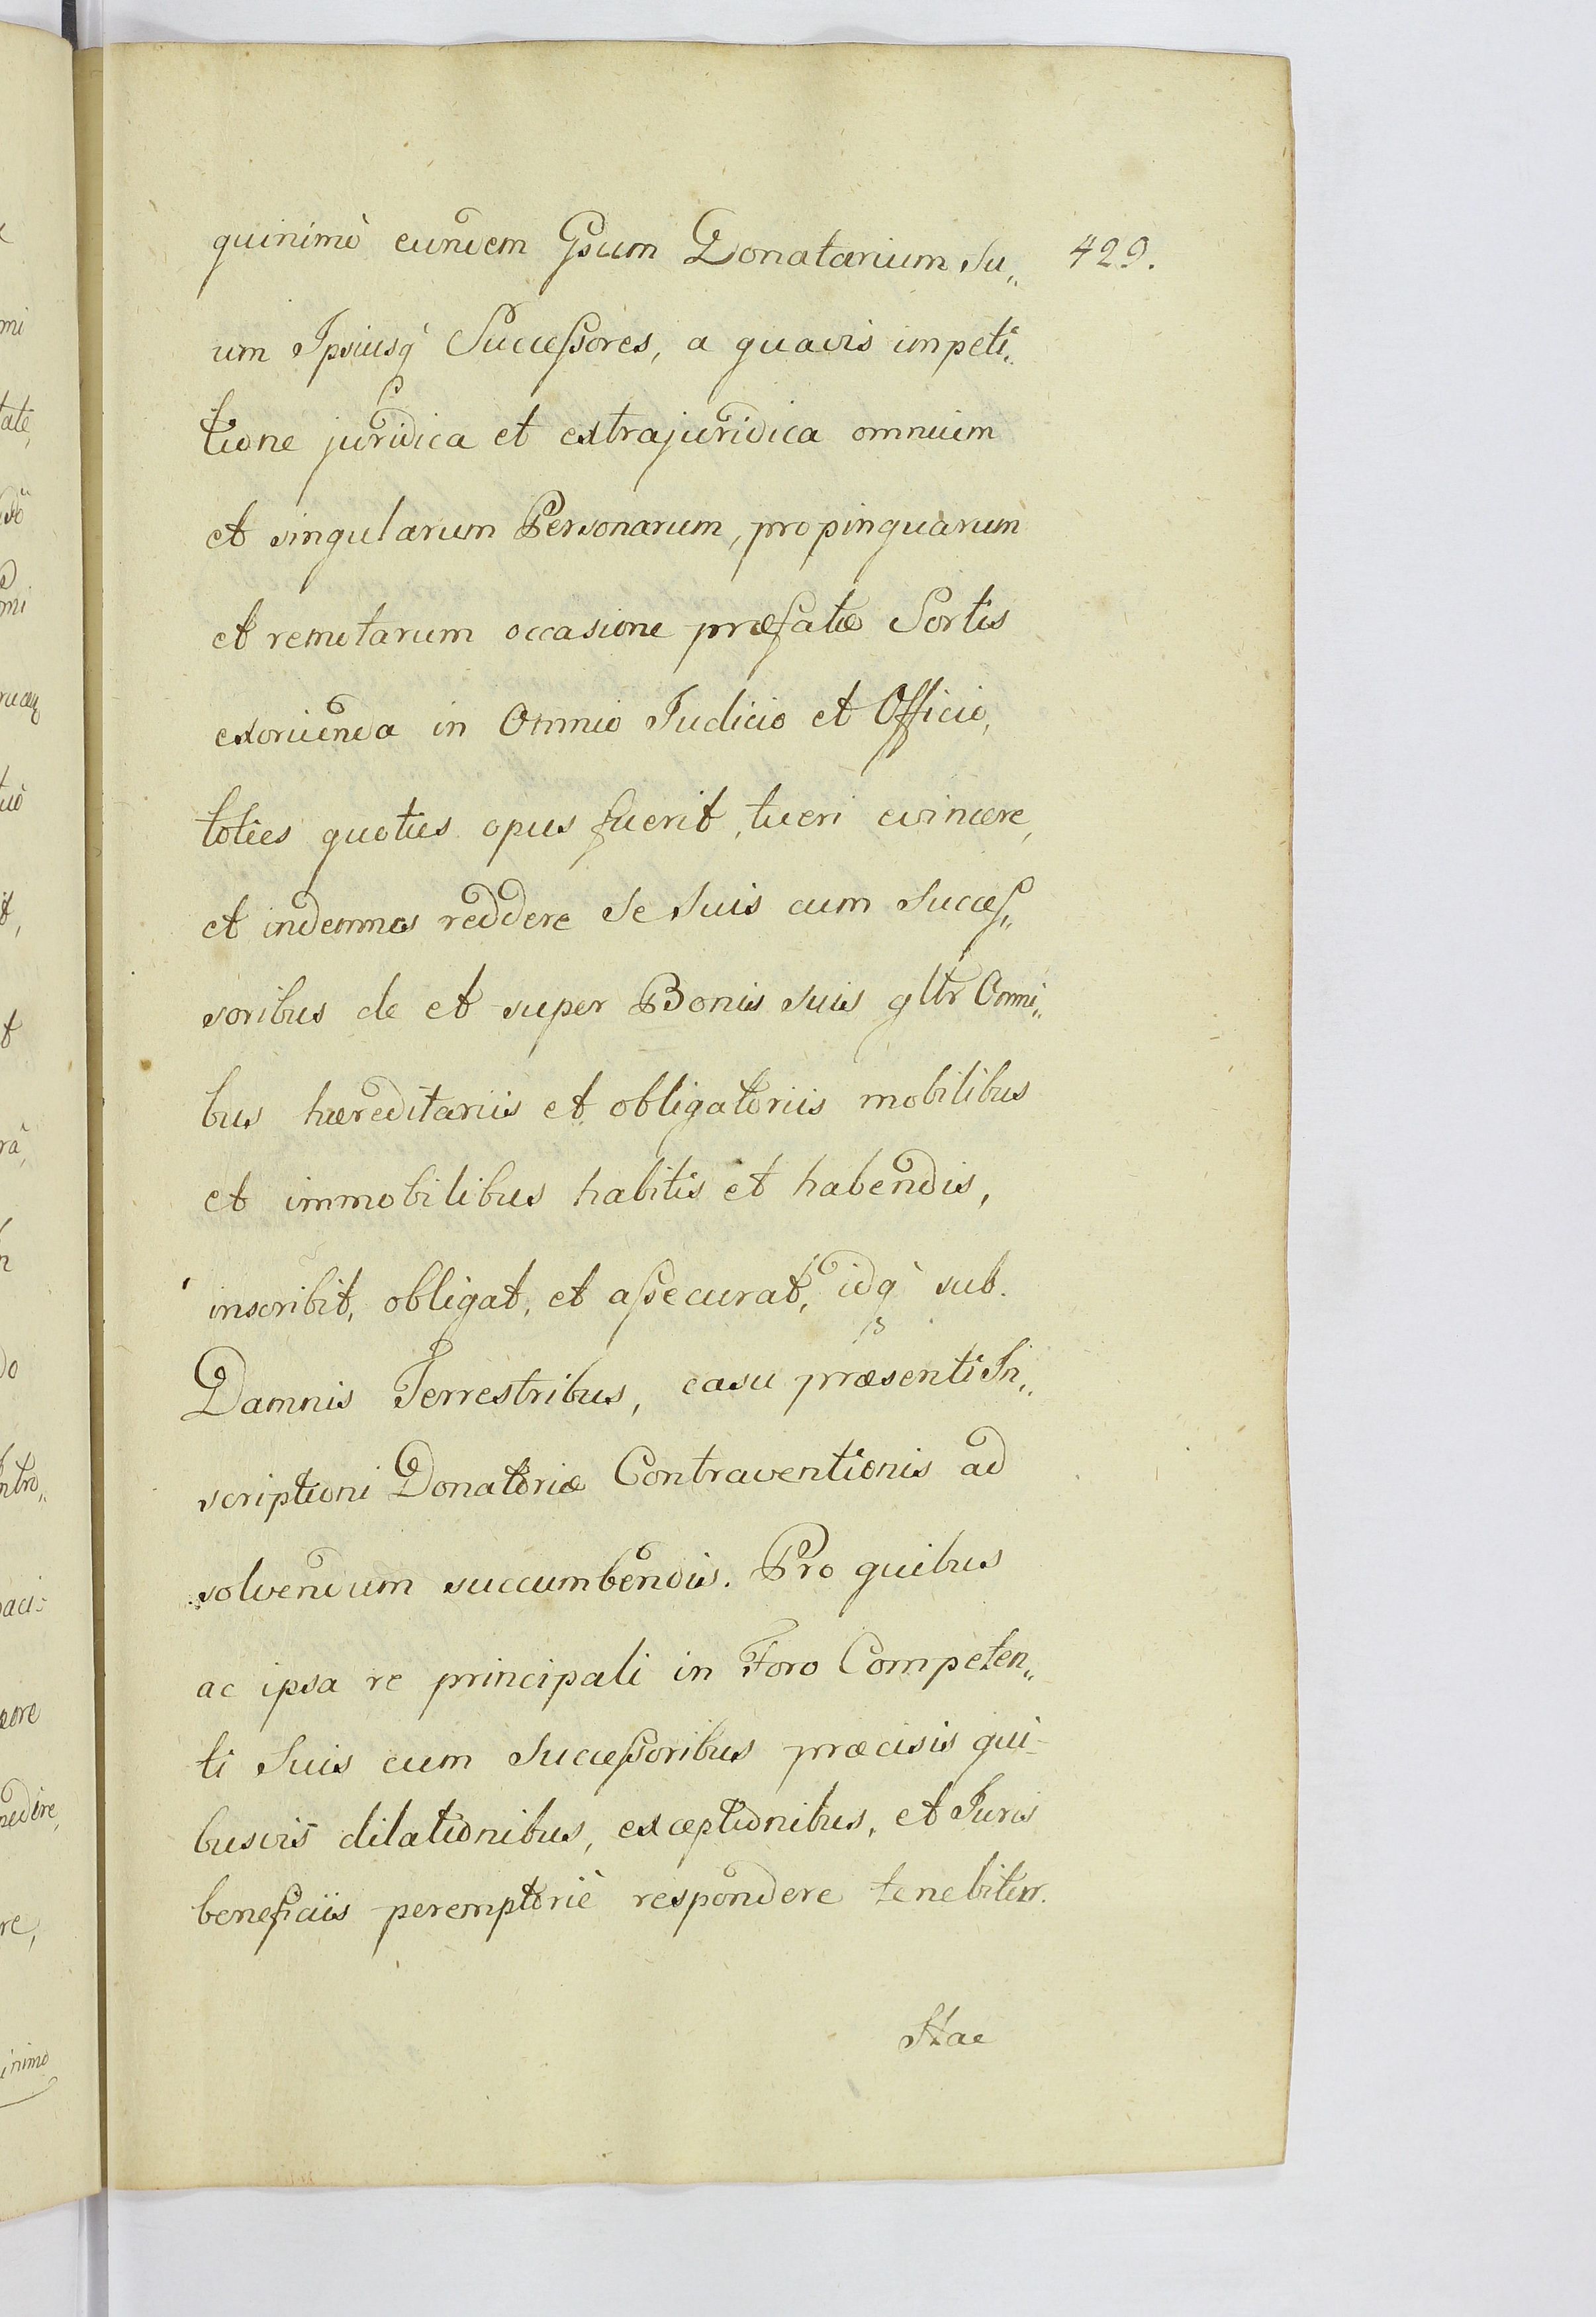 quinimò eundem Gsum Donatarium su„ 429.
um Ipsiusq̀ Successores, a quavis impeti„
tione juridica et extrajuridica omnium
et singularum Personarum, propinquarum
et remotarum occasione præfatæ Sortis
exorienda in Omnio Iudicio et Officio,
toties quoties opus fuerit, tueri evincere,
et indemnes reddere se suis cum succes„
soribus de et super Bonis suis gltr Omni„
bus hæreditariis et obligatoriis mobilibus
et immobilibus habitis et habendis,
inscribit, obligat, et assecurat, idq̀ sub.
Damnis Terrestribus, casu præsenti In„
scriptioni Donatoriæ Contraventionis ad
solvendum succumbendis. Pro quibus
ac ipsa re principali in Foro Competen„
ti suis cum successoribus præcisis qui-
busvis dilationibus, exceptionibus, et Iuris
beneficiis peremptoriè respondere tenebitur.
Hac